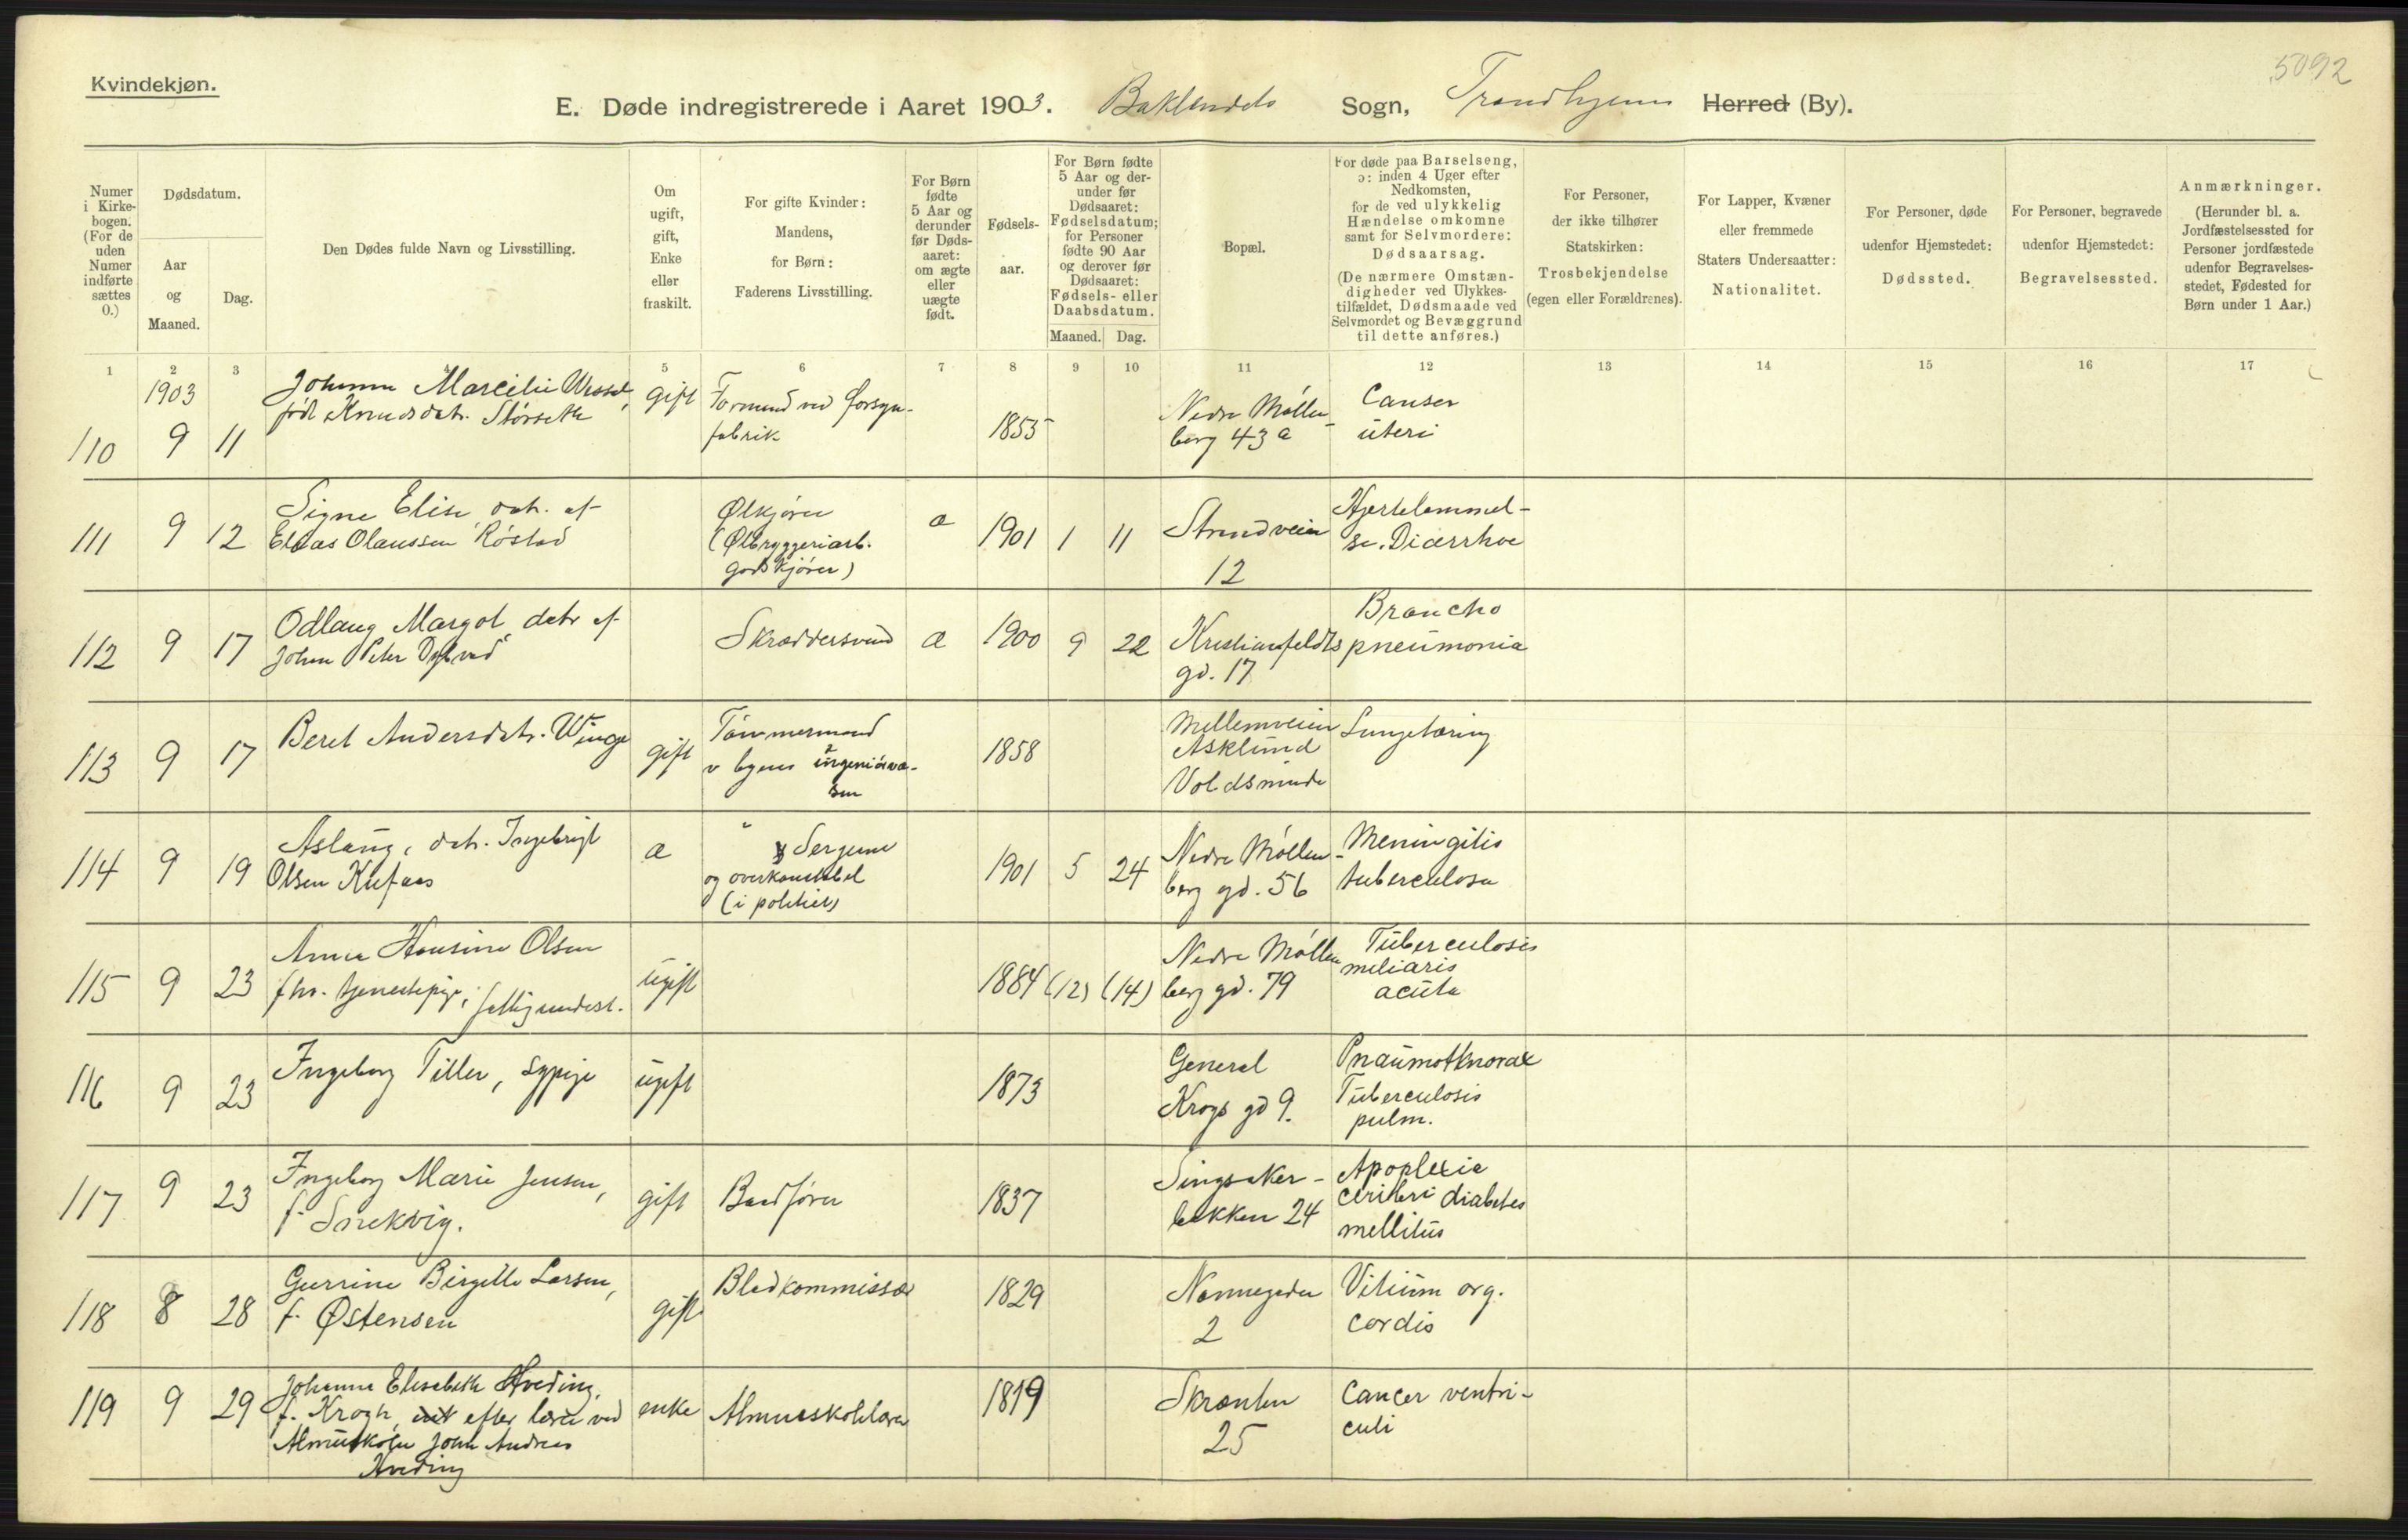 5092
Kvindekjøn.
E. Døde indregistrerede i Aaret 1903. Baklandets Sogn, Trondhjems Herred (By).
Numer i Kirkebogen. (For de uden Numer indførte sættes 0.)
Dødsdatum.
Aar og Maaned.
Dag.
Den Dødes fulde Navn og Livsstilling.
Om ugift, gift, Enke eller fraskilt.
For gifte Kvinder: Mandens, for Børn: Faderens Livsstilling.
For Børn fødte 5 Aar og derunder før Dødsaaret: om ægte eller uægte født.
Fødselsaar.
For Børn fødte 5 Aar og derunder før Dødsaaret: Fødselsdatum; for Personer fødte 90 Aar og derover før Dødsaaret: Fødsels- eller Daabsdatum.
Maaned. Dag.
Bopæl.
For døde paa Barselseng, ɔ: inden 4 Uger efter Nedkomsten, for de ved ulykkelig Hændelse omkomne samt for Selvmordere: Dødsaarsag.
(De nærmere Omstændigheder ved Ulykkestilfældet, Dødsmaade ved Selvmordet og Bevæggrund til dette anføres.)
For Personer, der ikke tilhører Statskirken: Trosbekjendelse (egen eller Forældrenes).
For Lapper, Kvæner eller fremmede Staters Undersaatter: Nationalitet.
For Personer, døde udenfor Hjemstedet: Dødssted.
For Personer, begravede udenfor Hjemstedet: Begravelsessted.
Anmærkninger. (Herunder bl. a. Jordfæstelsessted for Personer jordfæstede udenfor Begravelsesstedet, Fødested for Børn under 1 Aar.)
1 2 3 5 6 7 8 9 10 11 12 13 14 15 16 17
1903
110 9 11 Johanna Marcelie
født Knudsdatr. Størseth
gift Formand ved
fabrik
1853
Nedre Møllen-
berg 43 a
Canser
uteri
111 9 12 Signe Elise datr. af
Elias Olaussen Røstad
Ølkjører
(Ølbryggeriarb.
godskjører)
æ 1901 1 11 Strandveien
12
Hjertelammel-
se. Diærrhoe
112 9 17 Odlaug Margot datr af
Johan Peter
Skræddersvend æ 1900 9 22 Kristianfeldts
gd. 17
Broncho
pneumonia
113 9 17 Beret Andersdatr. Winge
gift Tømmermand
v byens ingeniørvæ-
sen
1858
Mellemveien
Asklund
Voldsminde
Lungetæring
114 9 19 Aslaug, datr. Ingebrigt
Olsen
æ Sergeant
og overkonstabel
(i politiet)
1901 5 24 Nedre Møllen-
berg gd. 56
Meningitis
tuberculosa
115 9 23 Anna Hansine Olsen
fhv. tjenestepige, fattigunderst.
ugift 1884 (12) (14) Nedre Møllen
berg gd. 79
Tuberculosis
meliaris
acuta
116 9 23 Ingeborg Tiller, sypige
ugift 1873 General
Krogs gd 9.
Pnaumothnorax
Tuberculosis
pulm.
117 9 23 Ingeborg Marie Jensen,
f. Snekvig.
gift Baadfører 1837 Singsaker-
bakken 24
Apoplexia
ceribri diabetes
mellitus
118 8 28 Gurrine Birgitte Larsen,
f. Østensen
gift Bladkommissær 1829 Nonnegaden
2
Vitium org.
cordis
119 9 29 Johanna Elisabeth Hveding,
f. Krogh, efter lærer ved
Almuskolen John Andreas
Hveding
enke Almueskolelærer 1819 Skrænten
25
Cancer ventri-
culi